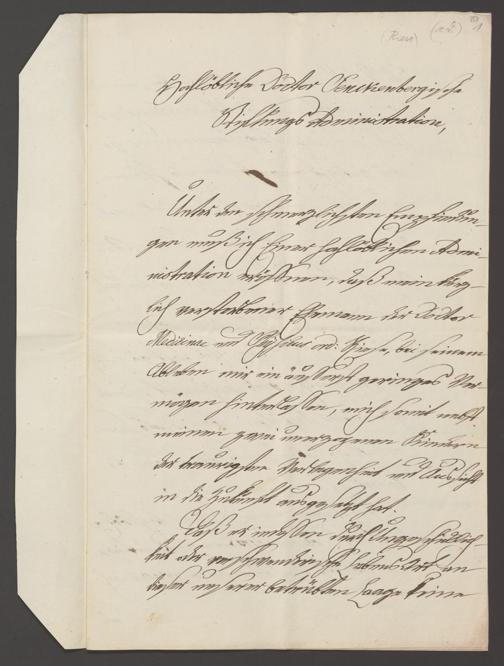 (Riese)
Hochlöbliche Doctor Senckenbergische
Stiftungs Administration,
Unter den schmerzlichsten Empfindun-
gen muß ich Einer hochlöblichen Admi-
nistration eröffnen, daß mein kürz-
lich verstorbener Ehemann der Doctor
Medicinae und Physicus ord: Riese, bei seinem
Ableben mir ein äusserst geringes Ver-
mögen hinterlassen, mich somit nebst
meinen zwei unerzogenen Kindern
der traurigsten Verlegenheit und Aussicht
in die Zukunft ausgesetzt hat.
Daß es indessen durch Ungeschicklich-
keit oder verschwenderische Lebens Art an
dieser unserer betrübten Laage keine